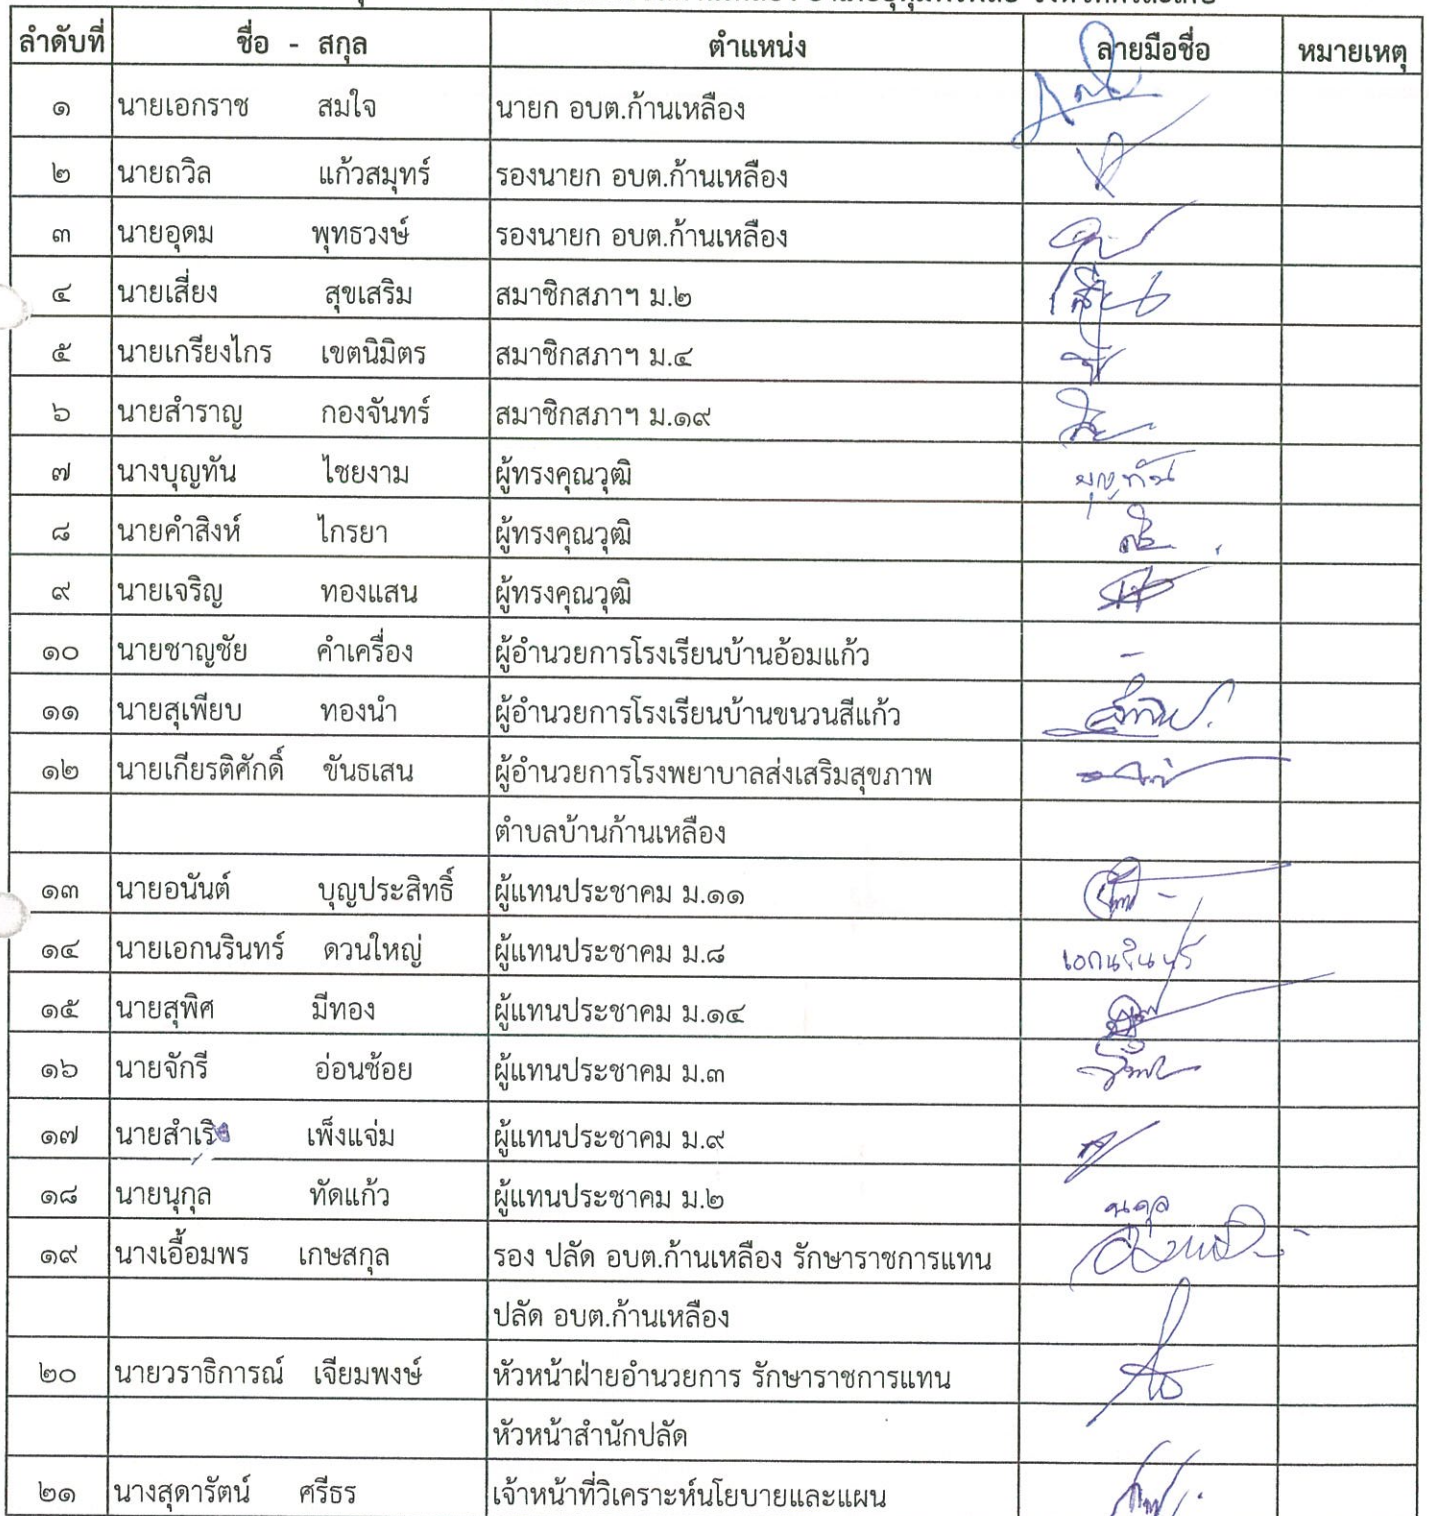 ลำดับที่ ชื่อ - สกุล ตำแหน่ง ลายมือชื่อ หมายเหตุ
๑ นายเอกราช สมใจ นายก อบต.ก้านเหลือง
๒ นายถวิล แก้วสมุทร์ รองนายก อบต.ก้านเหลือง
๓ นายอุดม พุทธวงษ์ รองนายก อบต.ก้านเหลือง
๔ นายเสี่ยง สุขเสริม สมาชิกสภาฯ ม.๒
๕ นายเกรียงไกร เขตนิมิตร สมาชิกสภาฯ ม.๔
๖ นายสำราญ กองจันทร์ สมาชิกสภาฯ ม.๑๙
๗ นางบุญทัน ไชยงาม ผู้ทรงคุณวุฒิ บุญทัน
๘ นายคำสิงห์ ไกรยา ผู้ทรงคุณวุฒิ
๙ นายเจริญ ทองแสน ผู้ทรงคุณวุฒิ
๑๐ นายชาญชัย คำเครื่อง ผู้อำนวยการโรงเรียนบ้านอ้อมแก้ว -
๑๑ นายสุเพียบ ทองนำ ผู้อำนวยการโรงเรียนบ้านขนวนสีแก้ว
๑๒ นายเกียรติศักดิ์ ขันธเสน ผู้อำนวยการโรงพยาบาลส่งเสริมสุขภาพ
ตำบลบ้านก้านเหลือง
๑๓ นายอนันต์ บุญประสิทธิ์ ผู้แทนประชาคม ม.๑๑
๑๔ นายเอกนรินทร์ ดวนใหญ่ ผู้แทนประชาคม ม.๘ เอกนรินทร์
๑๕ นายสุพิศ มีทอง ผู้แทนประชาคม ม.๑๔
๑๖ นายจักรี อ่อนช้อย ผู้แทนประชาคม ม.๓
๑๗ เพ็งแจ่ม ผู้แทนประชาคม ม.๙
๑๘ นายนุกุล ทัดแก้ว ผู้แทนประชาคม ม.๒ นุกุล
๑๙ นางเอื้อมพร เกษสกุล รอง ปลัด อบต.ก้านเหลือง รักษาราชการแทน
ปลัด อบต.ก้านเหลือง
๒๐ นายวราธิการณ์ เจียมพงษ์ หัวหน้าฝ่ายอำนวยการ รักษาราชการแทน
หัวหน้าสำนักปลัด
๒๑ นางสุดารัตน์ ศรีธร เจ้าหน้าที่วิเคราะห์นโยบายและแผน